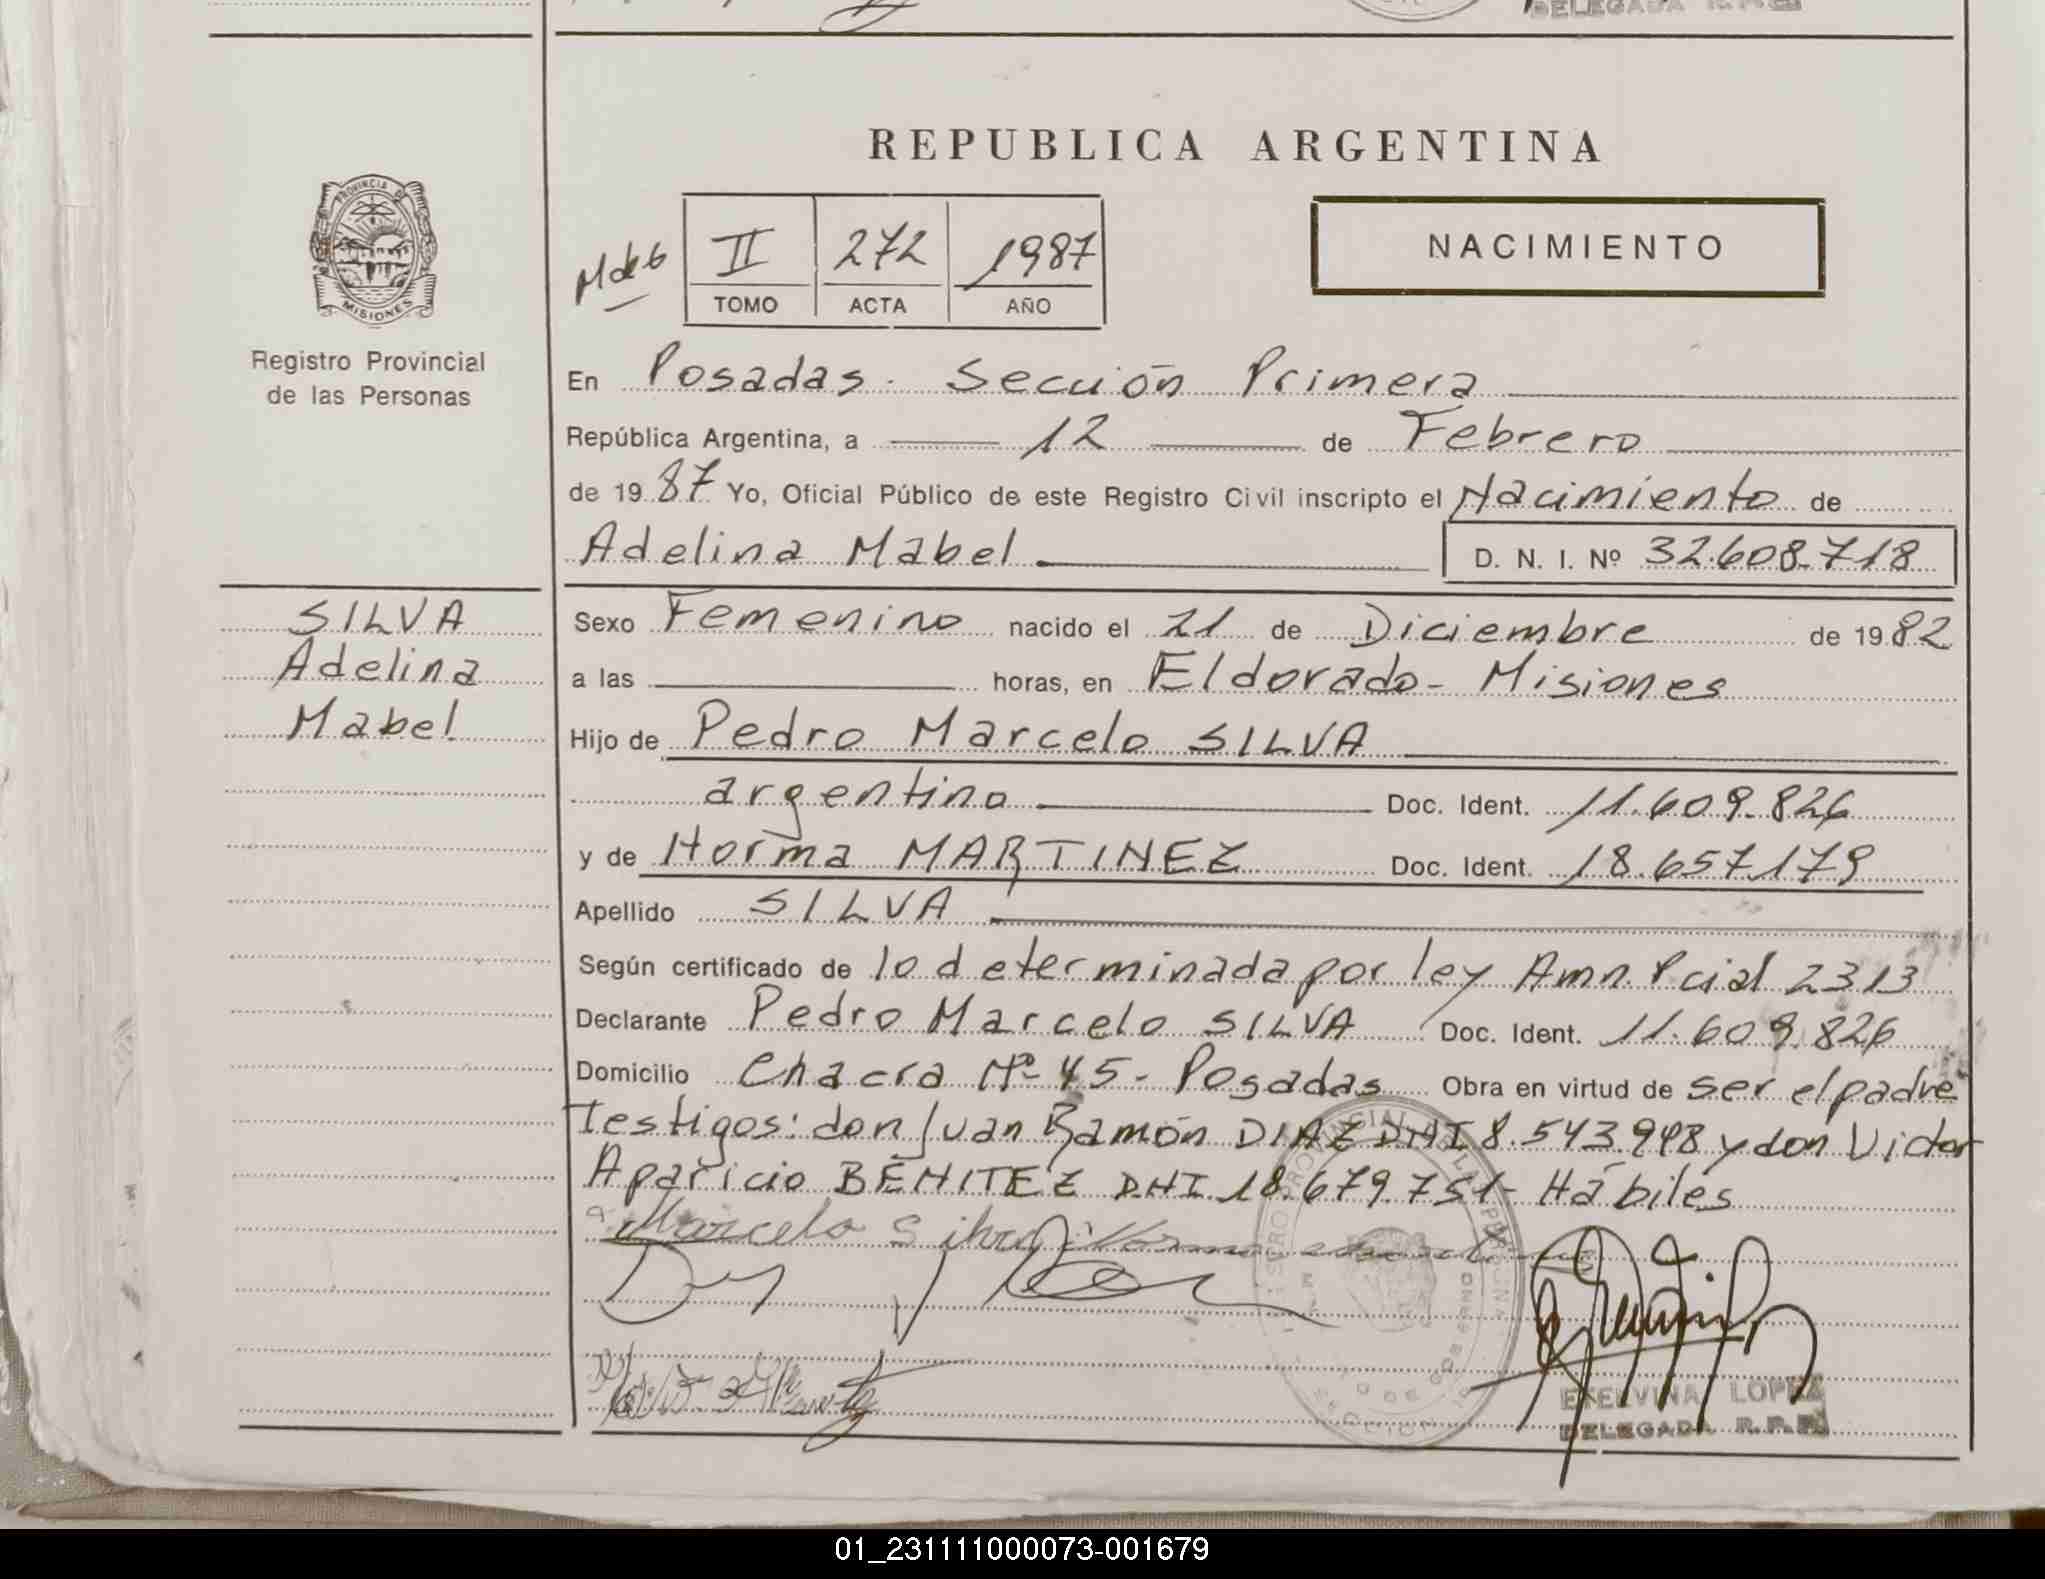 DELEGADA R.P.P.
REPUBLICA ARGENTINA
PROVINCIA DE
MISIONES
Registro Provincial
de las Personas
II 272 1987
TOMO ACTA AÑO
NACIMIENTO
En Posadas. Sección Primera
República Argentina, a 12 de Febrero
de 1987 Yo, Oficial Público de este Registro Civil inscripto el Nacimiento de
Adelina Mabel D. N. I. Nº 32.608.718
SILVA
Adelina
Mabel
Sexo Femenino nacido el 21 de Diciembre de 1982
a las horas, en Eldorado - Misiones
Hijo de Pedro Marcelo SILVA
argentino Doc. Ident. 11.609.826
y de Norma MARTINEZ Doc. Ident. 18.657.179
Apellido SILVA
Según certificado de lo determinada por ley Amn. Pcial 2313
Declarante Pedro Marcelo SILVA Doc. Ident. 11.609.826
Domicilio Chacra Nº 45 - Posadas Obra en virtud de ser el padre
Testigos: don Juan Ramón DIAZ DNI 8.543.948 y don Victor
Aparicio BENITEZ DNI 18.679.751 - Hábiles
Marcelo Silva Norma
ETELVINA LOPEZ
DELEGADA R.P.P.
01_231111000073-001679